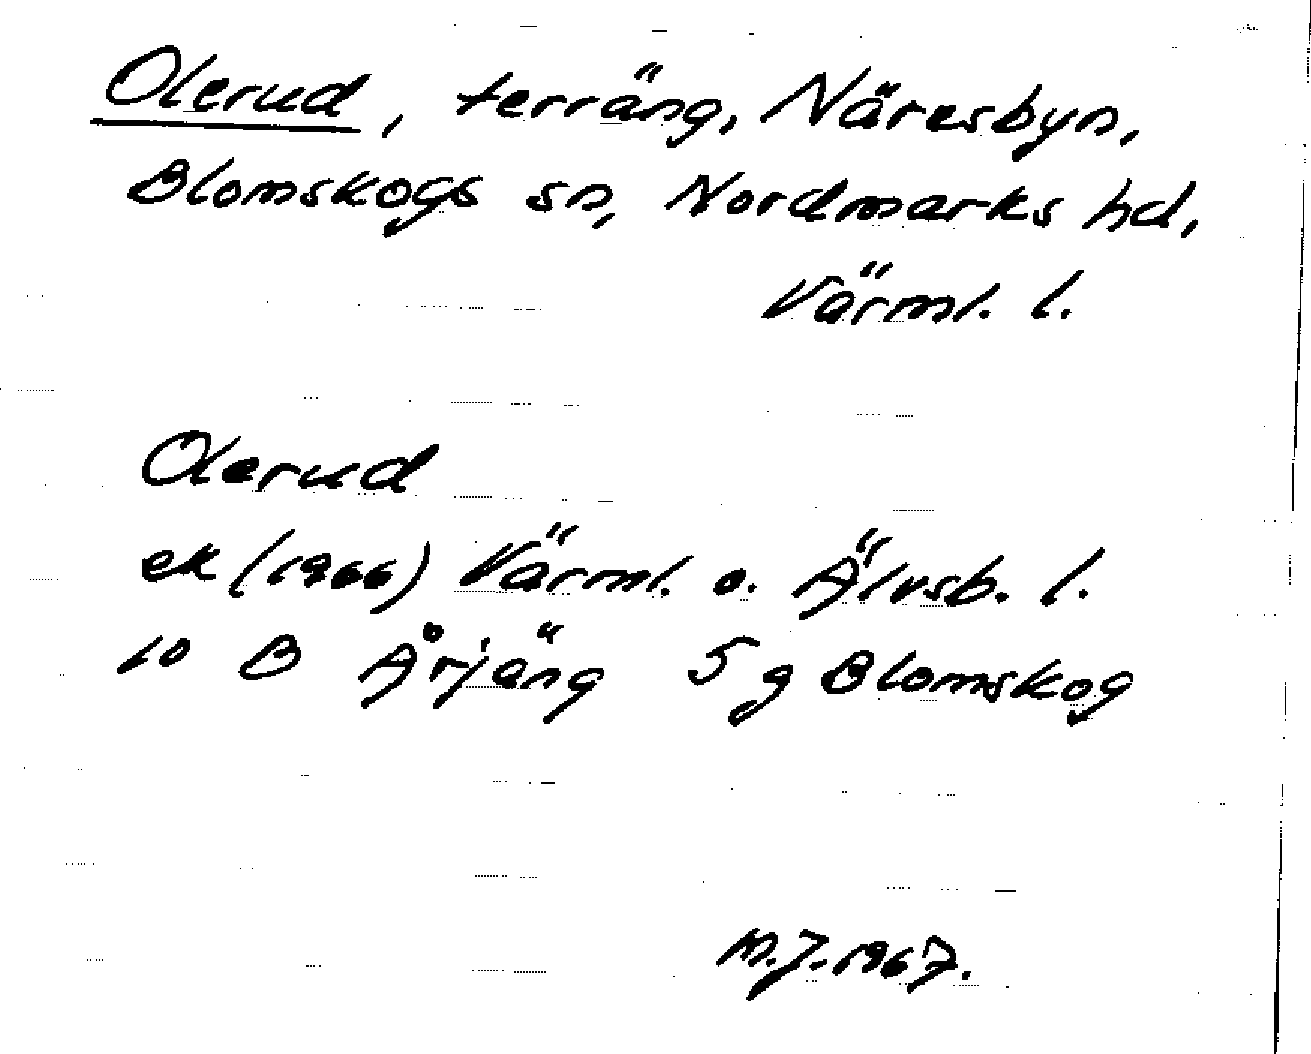 Olerud, terräng, Näresbyn,
Blomskogs sn, Nordmarks hd,
Värml. l.
Olerud
ek (1966) Värml. o. Älvsb. l.
10 B Årjäng 5 g Blomskog
M.J. 1967.